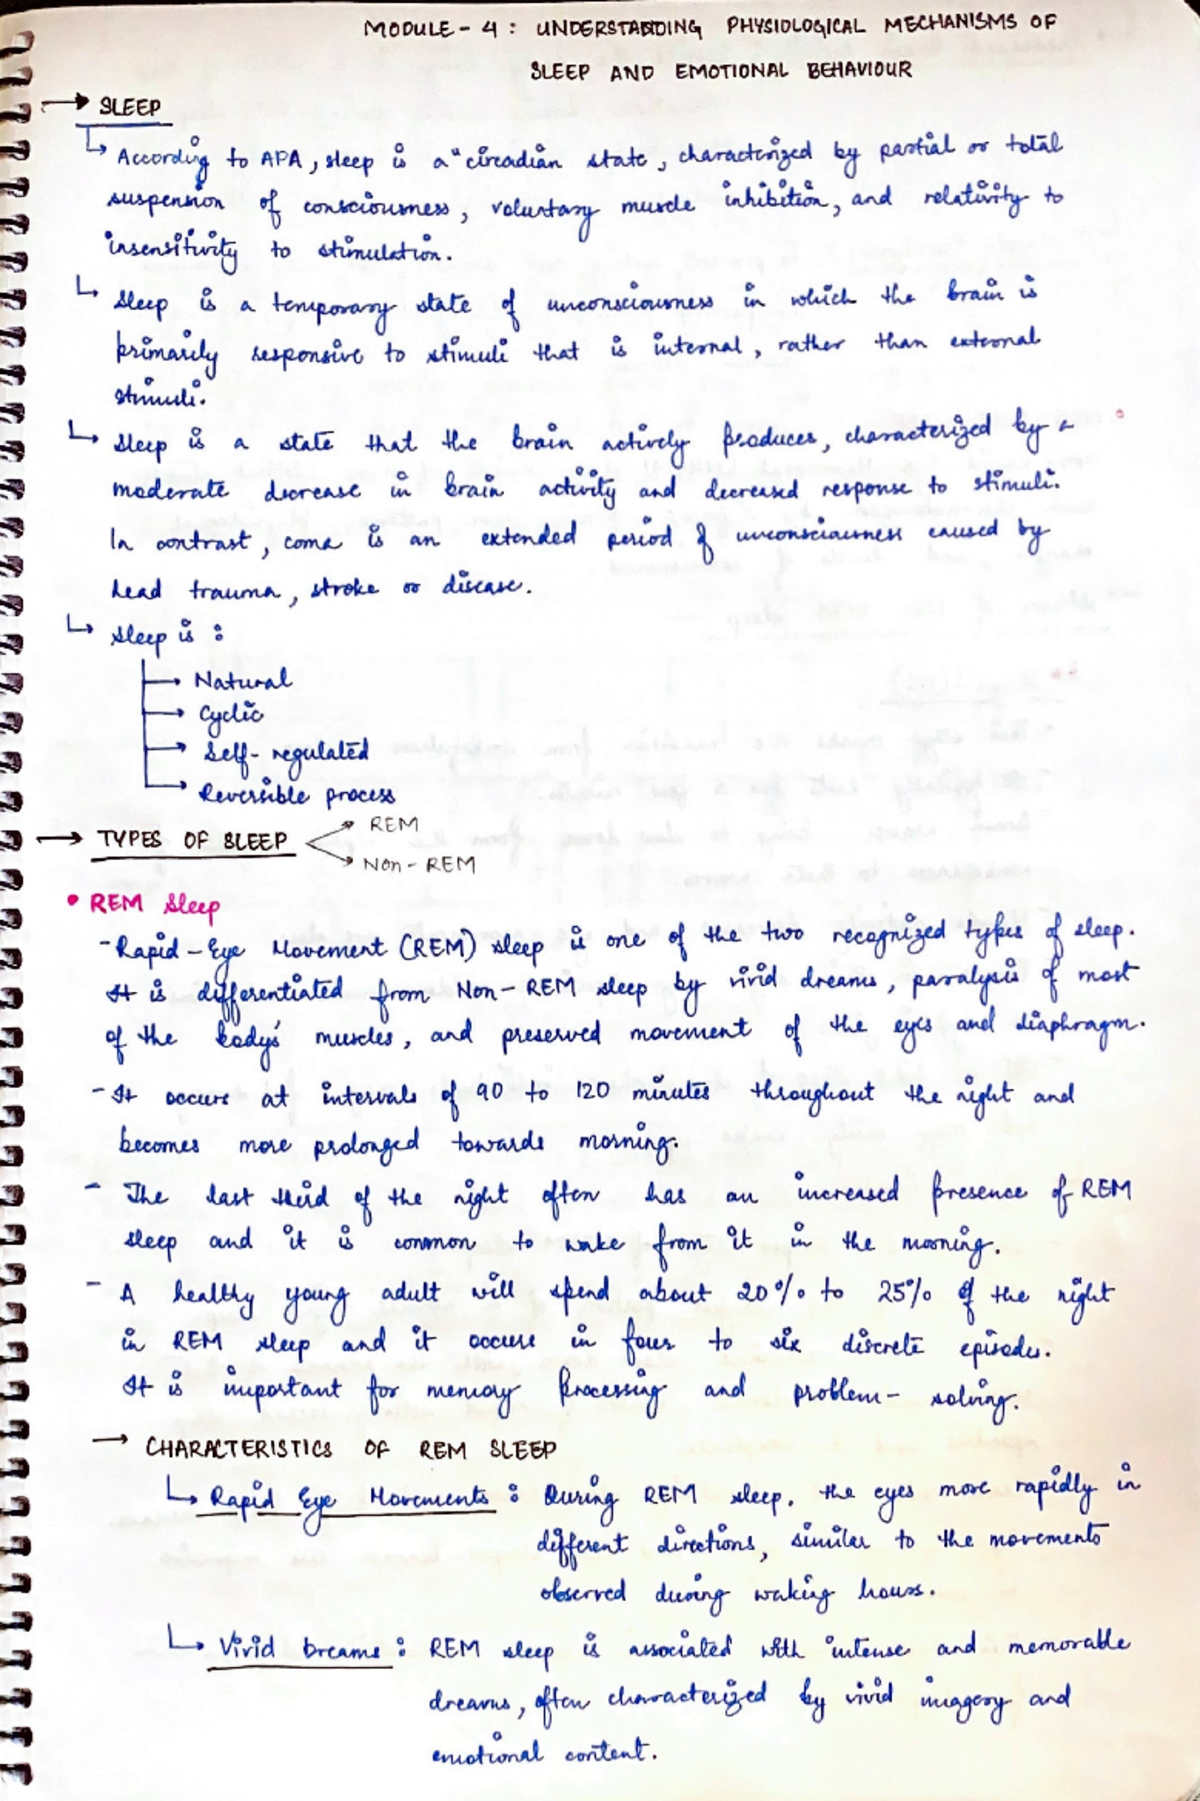 MODULE - 4 : UNDERSTANDING PHYSIOLOGICAL MECHANISMS OF
SLEEP AND EMOTIONAL BEHAVIOUR
→ SLEEP
↳ According to APA, sleep is a "circadian state, characterized by partial or total
suspension of consciousness, voluntary muscle inhibition, and relativity to
insensitivity to stimulation.
↳ Sleep is a temporary state of unconsciousness in which the brain is
primarily responsive to stimuli that is internal, rather than external
stimuli.
↳ Sleep is a state that the brain actively produces, characterized by a
moderate decrease in brain activity and decreased response to stimuli.
In contrast, coma is an extended period of unconsciousness caused by
head trauma, stroke or disease.
↳ Sleep is :
→ Natural
→ Cyclic
→ Self-regulated
→ Reversible process
→ TYPES OF SLEEP
REM
Non-REM
• REM Sleep
- Rapid-Eye Movement (REM) sleep is one of the two recognized types of sleep.
It is differentiated from Non-REM sleep by vivid dreams, paralysis of most
of the body's muscles, and preserved movement of the eyes and diaphragm.
- It occurs at intervals of 90 to 120 minutes throughout the night and
becomes more prolonged towards morning.
- The last third of the night often has an increased presence of REM
sleep and it is common to wake from it in the morning.
- A healthy young adult will spend about 20% to 25% of the night
in REM sleep and it occurs in four to six discrete episodes.
It is important for memory processing and problem-solving.
→ CHARACTERISTICS OF REM SLEEP
↳ Rapid Eye Movements : During REM sleep, the eyes move rapidly in
different directions, similar to the movements
observed during waking hours.
↳ Vivid Dreams : REM sleep is associated with intense and memorable
dreams, often characterized by vivid imagery and
emotional content.